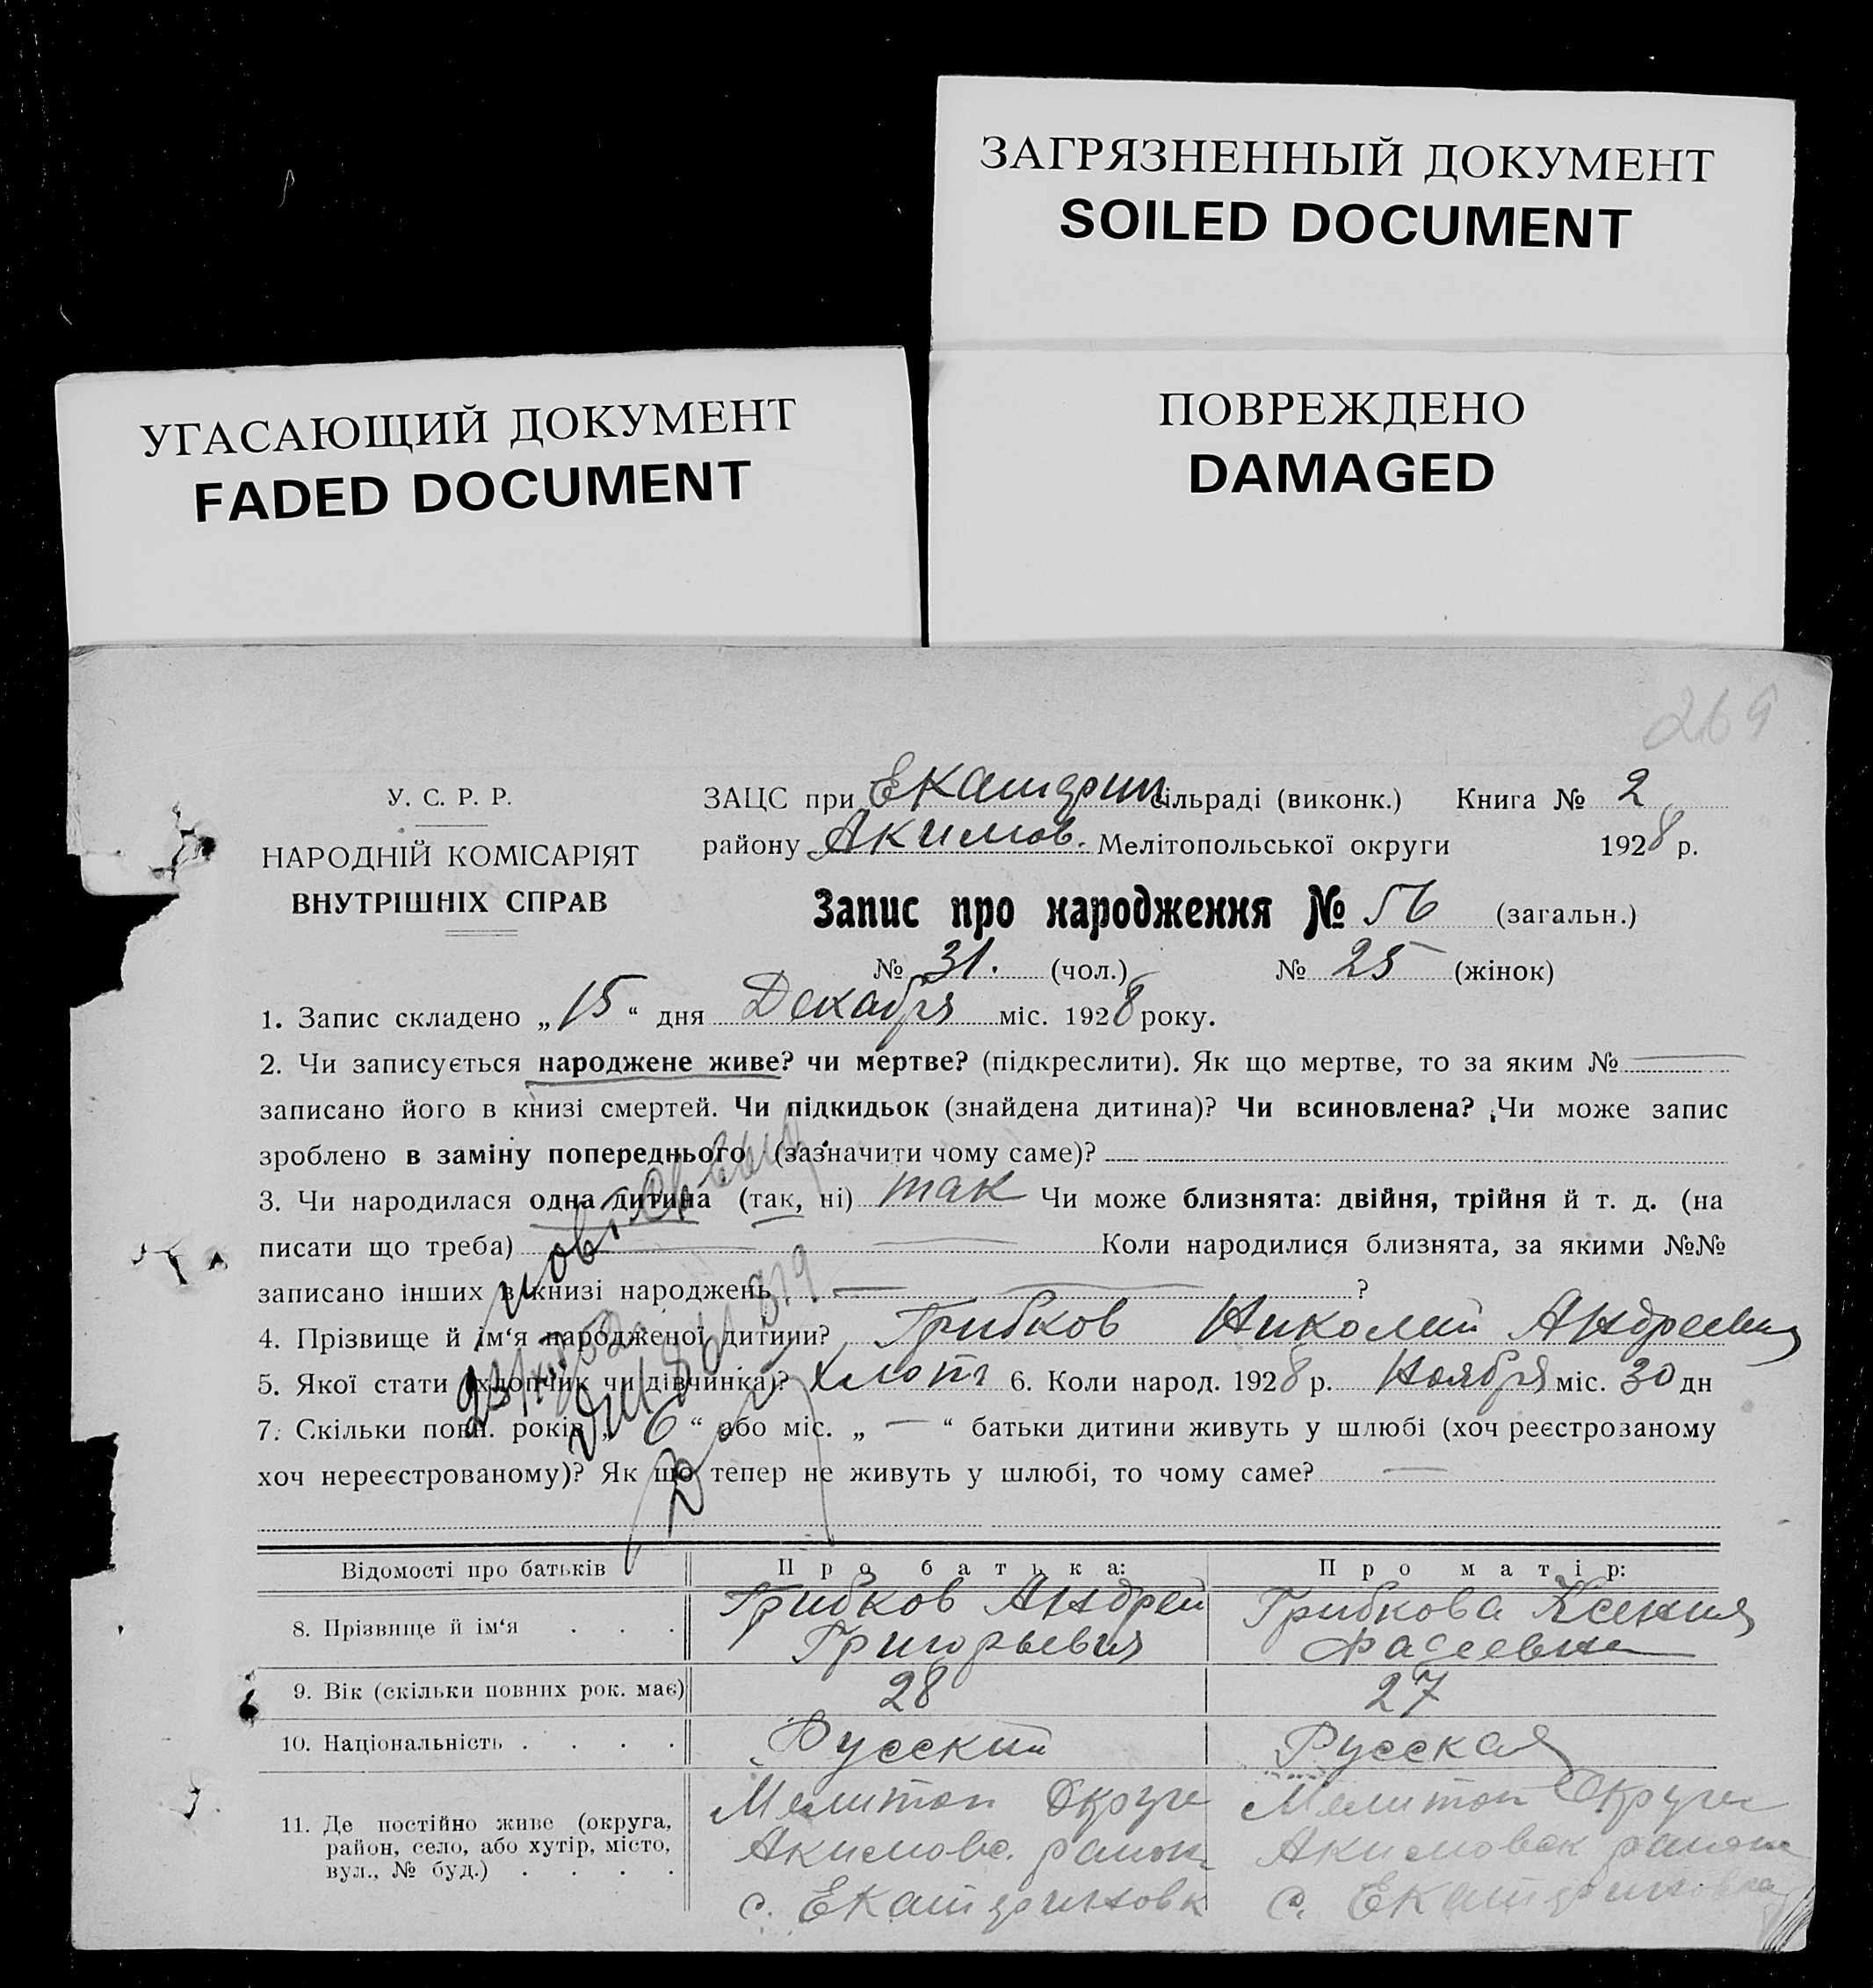 ЗАГРЯЗНЕННЫЙ ДОКУМЕНТ
SOILED DOCUMENT
УГАСАЮЩИЙ ДОКУМЕНТ
FADED DOCUMENT
ПОВРЕЖДЕНО
DAMAGED
269
У. С. Р. Р.
НАРОДНІЙ КОМІСАРІЯТ
ВНУТРІШНІХ СПРАВ
ЗАЦС при Екатерин сільраді (виконк.) Книга № 2
району Акимов. Мелітопольської округи 1928 р.
Запис про народження № 56 (загальн.)
№ 31. (чол.) № 25 (жінок)
1. Запис складено „15“ дня Декабря міс. 1928 року.
2. Чи записується народжене живе? чи мертве? (підкреслити). Як що мертве, то за яким № —
записано його в книзі смертей. Чи підкидьок (знайдена дитина)? Чи всиновлена? Чи може запис
зроблено в заміну попереднього (зазначити чому саме)?
3. Чи народилася одна дитина (так, ні) так Чи може близнята: двійня, трійня й т. д. (на
писати що треба) — — Коли народилися близнята, за якими №№
записано інших в книзі народжень — — ?
4. Прізвище й ім‘я народженої дитини? Грибков Николай Андреевич
5. Якої стати (хлопчик чи дівчинка)? хлопч 6. Коли народ. 1928 р. Ноября міс. 30 дн
7. Скільки повн. років „6“ або міс. „—“ батьки дитини живуть у шлюбі (хоч реєстрозаному
хоч нереєстрованому)? Як що тепер не живуть у шлюбі, то чому саме? —
Відомості про батьків Про батька: Про матір:
8. Прізвище й ім‘я . . . Грибков Андрей Григорьевич Грибкова Ксения Фадеевна
9. Вік (скільки повних рок. має) 28 27
10. Національність . . . . Русский Русская
11. Де постійно живе (округа, Мелитоп Округи Мелитоп Округи
район, село, або хутір, місто, Акимовс. район Акимовск района
вул., № буд.) . . . . с. Екатериновк с. Екатериновка